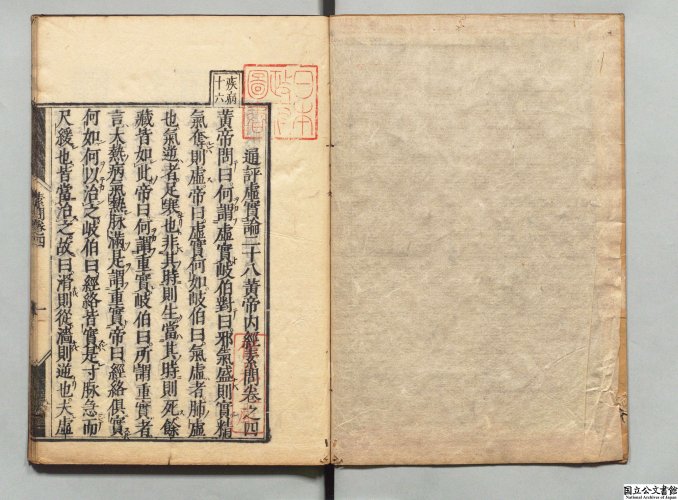 疾病
十六
通評虛實論二十八黃帝內經素問卷之四
黃帝問曰何謂虛實岐伯對曰邪氣盛則實精
氣奪則虛帝曰虛實何如岐伯曰氣虛者肺虛
也氣逆者足寒也非其時則生當其時則死餘
藏皆如此帝曰何謂重實岐伯曰所謂重實者
言大熱病氣熱脉滿是謂重實帝曰經絡俱實
何如何以治之岐伯曰經絡皆實是寸脉急而
尺緩也皆當治之故曰滑則從濇則逆也夫虛
日本
政府
圖書
素問卷四
一
国立公文書館
National Archives of Japan